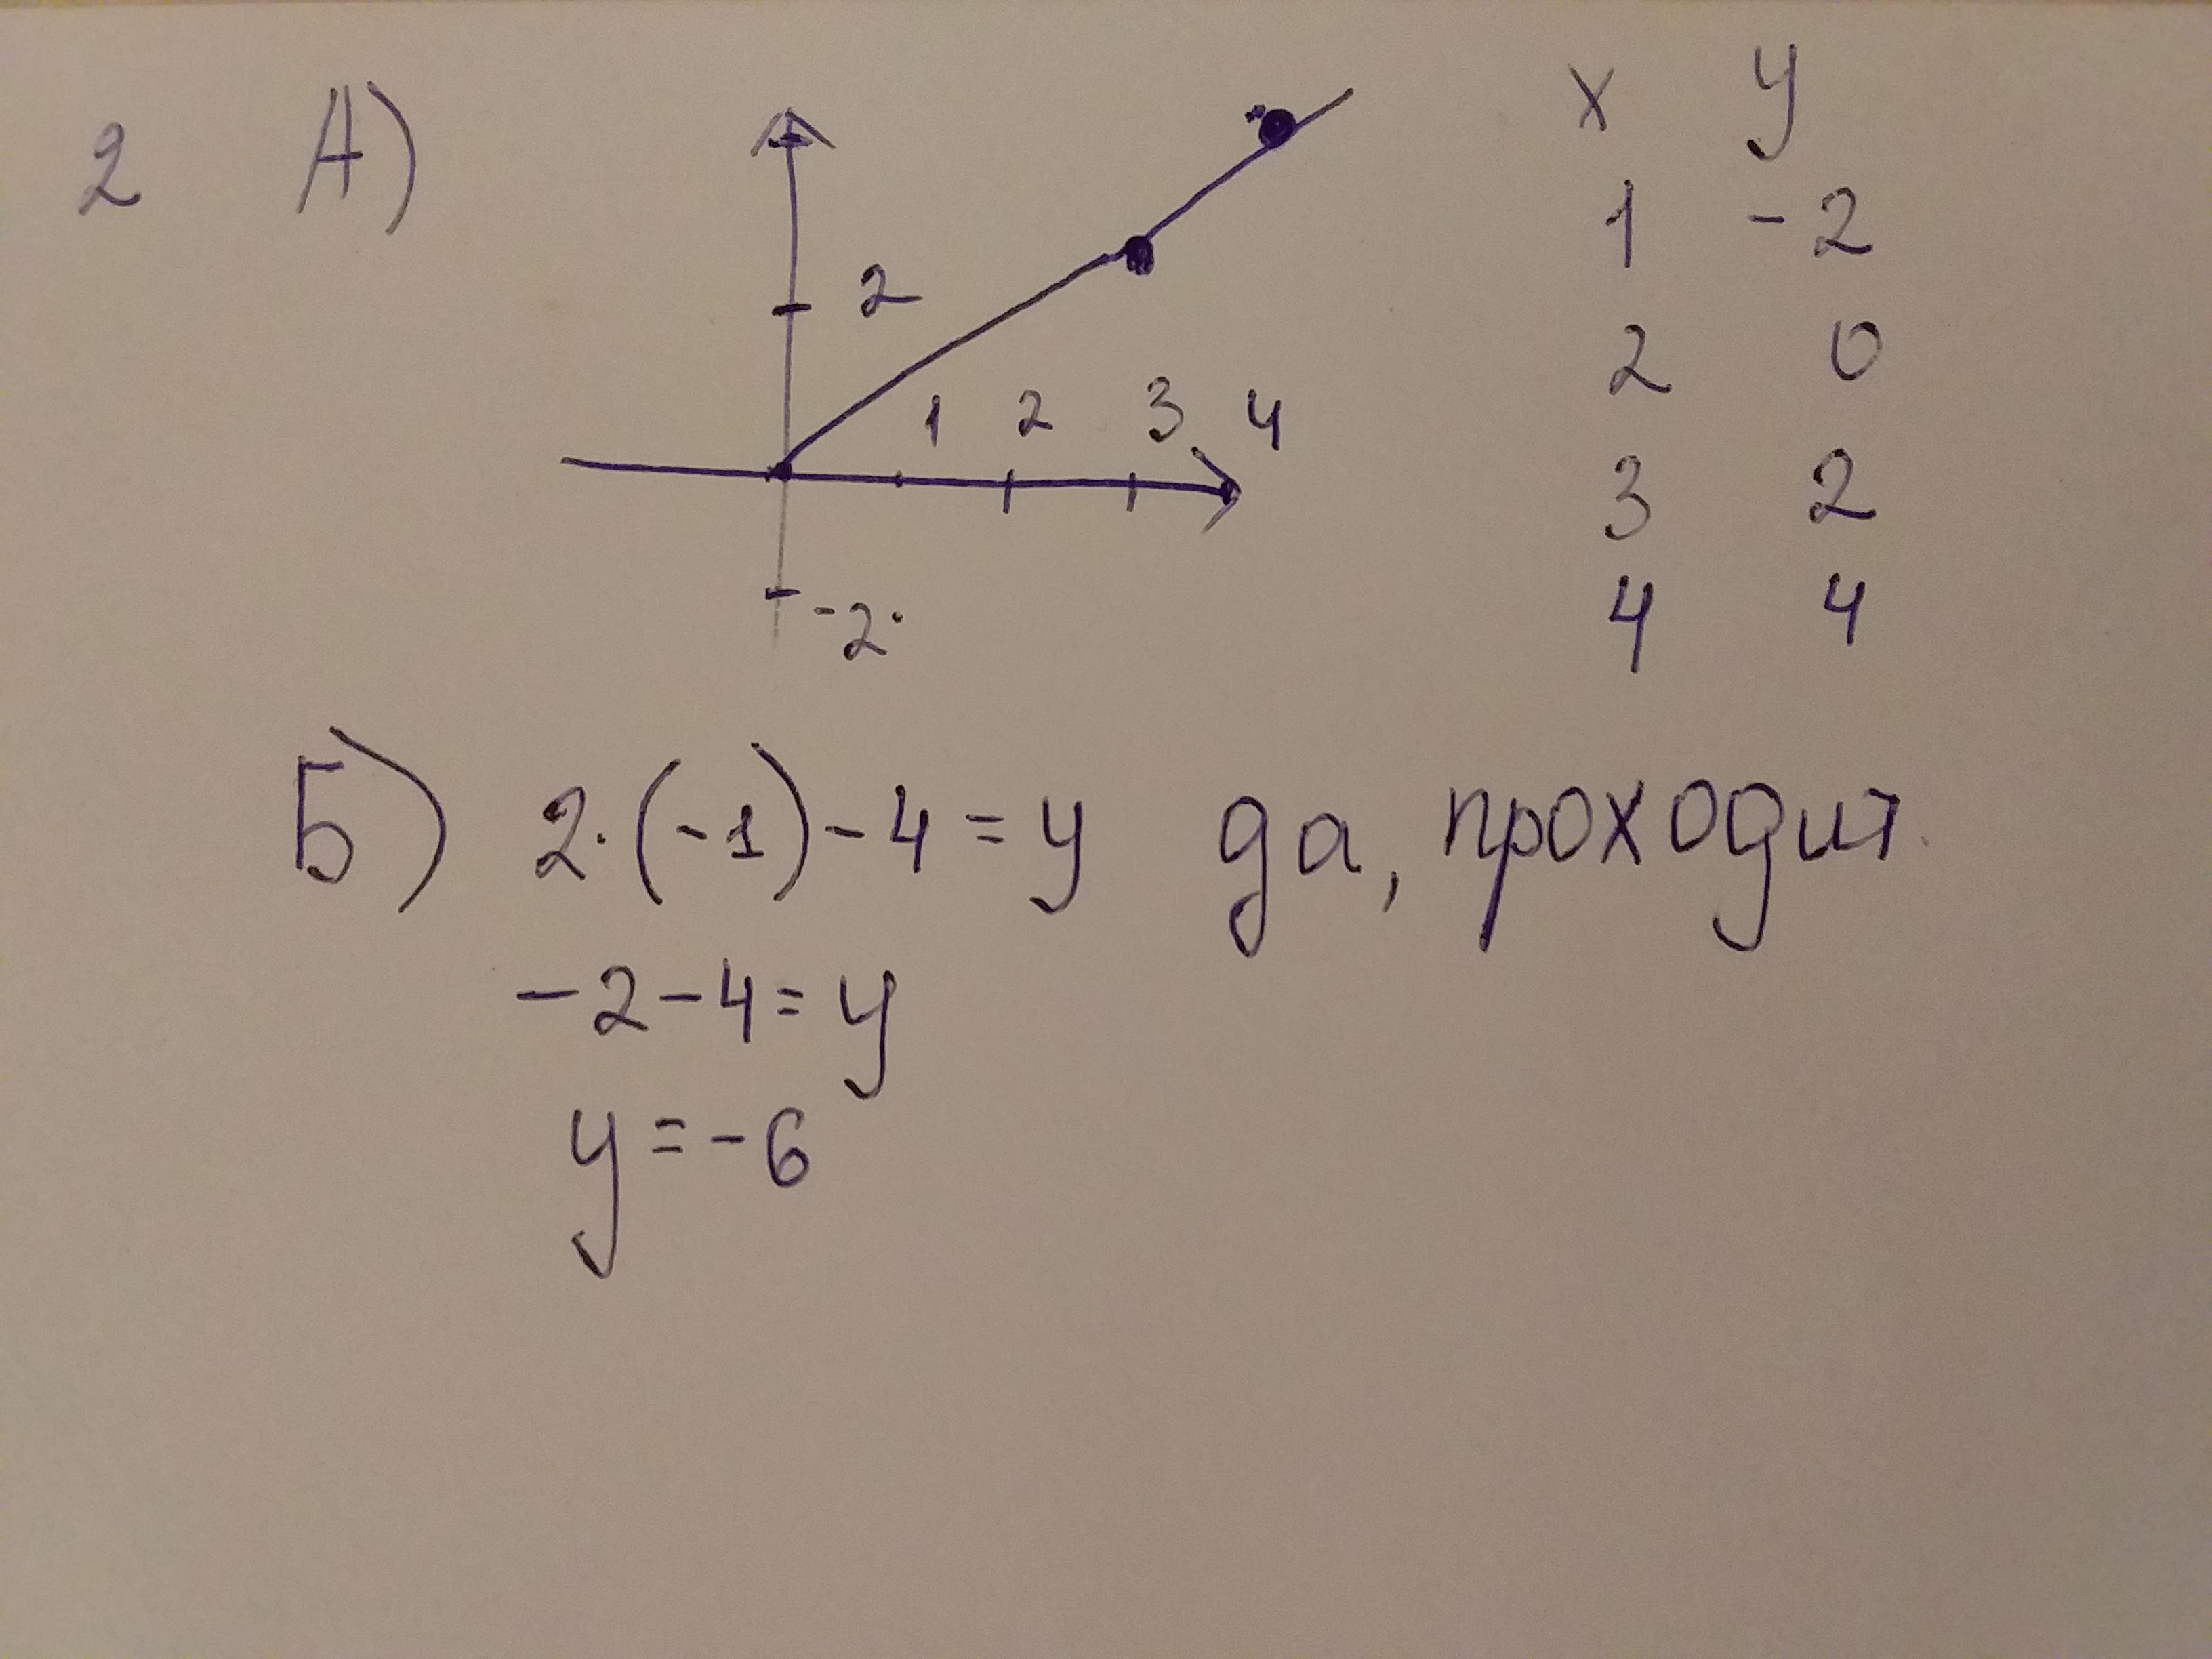 2 А)
x y
1 -2
2 0
3 2
4 4
2
1 2 3 4
-2
Б) 2·(-1)-4=y да, проходит.
-2-4=y
y=-6